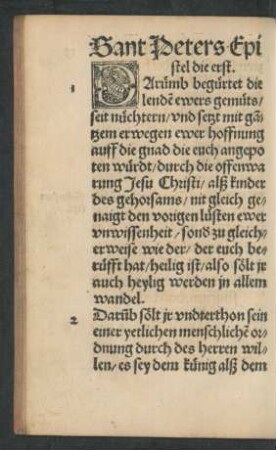 Sant Peters Epi
stel die erst.
1 DArũmb begürtet die
lendẽ ewers gemüts/
seit nüchtern/ vnd setzt mit gã-
tzem erwegen ewer hoffnung
auff die gnad die euch angepo
ten würdt/ durch die offenwa
rung Jesu Christi/ alß kinder
des gehorsams/ nit gleich ge-
naigt den vorigen lüsten ewer
vnwissenheit/ sondˀ zu gleich-
erweise wie der/ der euch be-
rüfft hat/ heilig ist/ also sölt jr
auch heylig werden jn allem
wandel.
2 Darũb sölt jr vndterthon sein
einer yetlichen menschlichẽ or-
dnung durch des herren wil-
len/ es sey dem künig alß dem